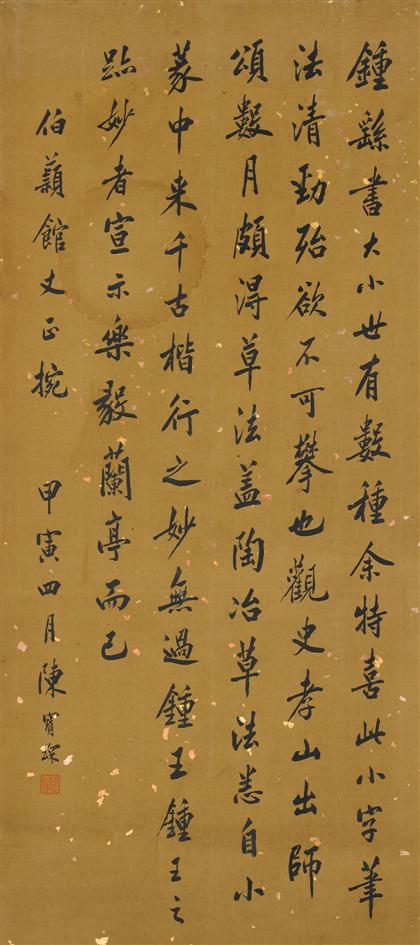 鍾繇書大小世有數種余特喜此小字筆
法清勁殆欲不可攀也觀史孝山出師
頌數月頗得草法蓋陶冶草法悉自小
篆中来千古楷行之妙無過鍾王鍾王之
跡妙者宣示樂毅蘭亭而已
伯蘋館丈正捥 甲寅四月陳寶琛